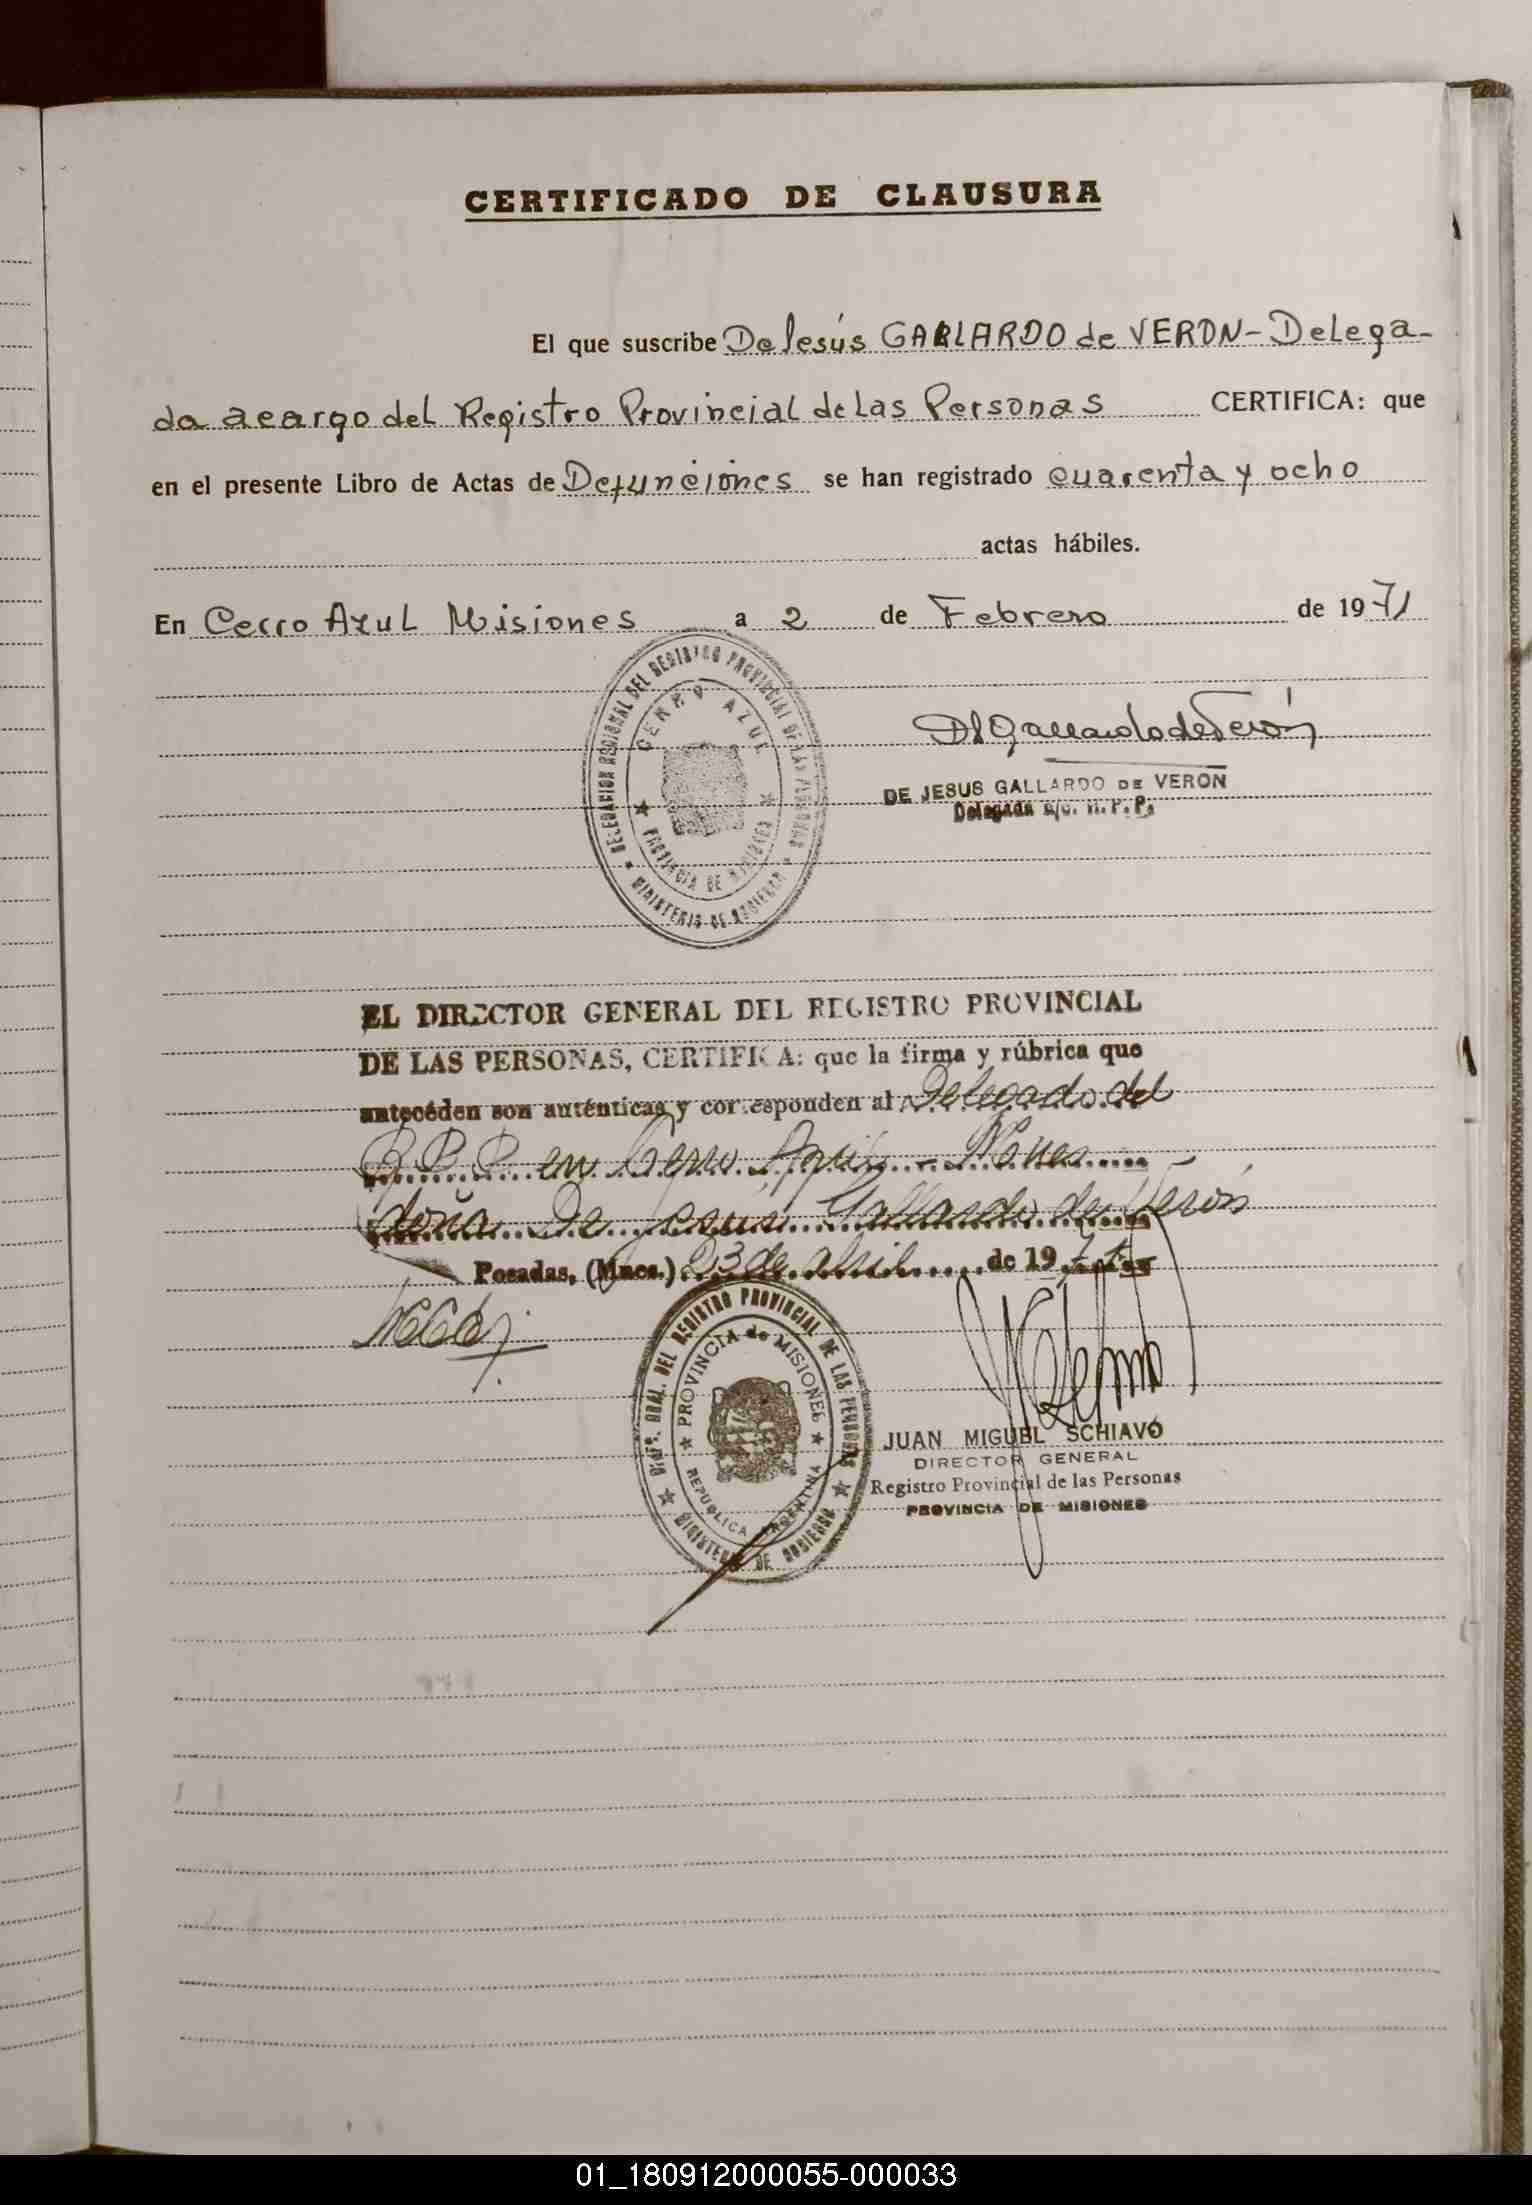 CERTIFICADO DE CLAUSURA
El que suscribe De Jesús GALLARDO de VERON - Delega-
da a cargo del Registro Provincial de las Personas CERTIFICA: que
en el presente Libro de Actas de Defunciones se han registrado cuarenta y ocho
actas hábiles.
En Cerro Azul Misiones a 2 de Febrero de 1971
DELEGACION REGIONAL DEL REGISTRO PROVINCIAL DE LAS PERSONAS
CERRO AZUL
PROVINCIA DE MISIONES
MINISTERIO DE GOBIERNO
DJGallardodeVerón
DE JESUS GALLARDO DE VERON
Delegada a/c. R. P. P.
EL DIRECTOR GENERAL DEL REGISTRO PROVINCIAL
DE LAS PERSONAS, CERTIFICA: que la firma y rúbrica que
antecéden son auténticas y corresponden al Delegado del
R.P.P. en Cerro Azul - Mnes
doña De Jesús Gallardo de Verón
Posadas, (Mnes.) 23 de abril de 1971
DIREC. GRAL. DEL REGISTRO PROVINCIAL DE LAS PERSONAS
PROVINCIA de MISIONES
REPUBLICA ARGENTINA
MINISTERIO DE GOBIERNO
JUAN MIGUEL SCHIAVÓ
DIRECTOR GENERAL
Registro Provincial de las Personas
PROVINCIA DE MISIONES
01_180912000055-000033